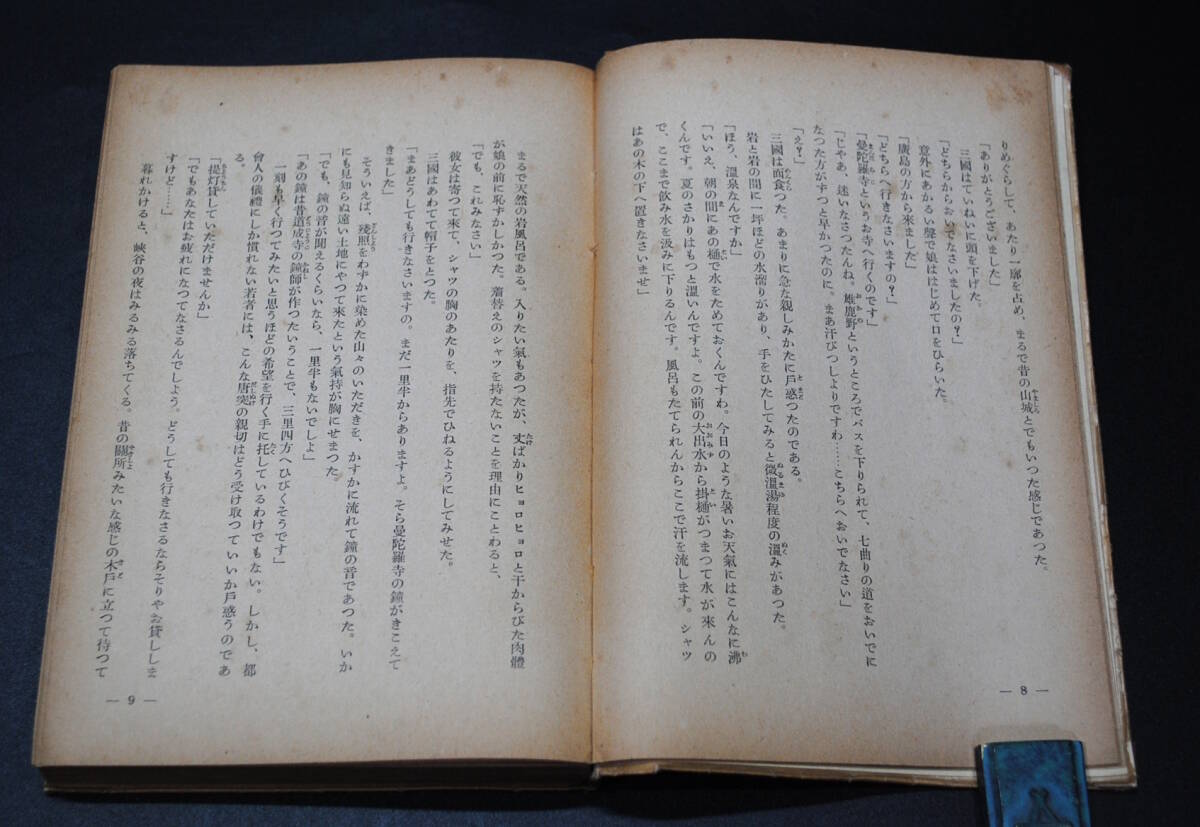 りめぐらして、あたり一廓を占め、まるで昔の山城とでもいつた感じであつた。
「ありがとうございました」
三國はていねいに頭を下げた。
「どちらからおいでなさいましたの?」
意外にあかるい聲で娘ははじめて口をひらいた。
「廣島の方から來ました」
「どちらへ行きなさいますの?」
「曼陀羅寺というお寺へ行くのです」
「じやあ、迷いなさつたんね。雄鹿野というところでバスを下りられて、七曲りの道をおいでに
なつた方がずつと早かつたのに。まあ汗びつしよりですわ……こちらへおいでなさい」
「え?」
三國は面食つた。あまりに急な親しみかたに戸惑つたのである。
岩と岩の間に一坪ほどの水溜りがあり、手をひたしてみると微溫湯程度の溫みがあつた。
「ほう、溫泉なんですか」
「いいえ、朝の間にあの樋で水をためておくんですわ。今日のような暑いお天氣にはこんなに沸
くんです。夏のさかりはもつと溫いんですよ。この前の大出水から掛樋がつまつて水が來んの
で、ここまで飲み水を汲みに下りるんです。風呂もたてられんからここで汗を流します。シャツ
はあの木の下へ置きなさいませ」
— 8 —
まるで天然の岩風呂である。入りたい氣もあつたが、丈ばかりヒョロヒョロと干からびた肉體
が娘の前に恥ずかしかつた。着替えのシャツを持たないことを理由にことわると、
「でも、これみなさい」
彼女は寄つて來て、シャツの胸のあたりを、指先でひねるようにしてみせた。
三國はあわてて帽子をとつた。
「まあどうしても行きなさいますの。まだ一里半からありますよ。そら曼陀羅寺の鐘がきこえて
きました」
そういえば、殘照をわずかに染めた山々のいただきを、かすかに流れて鐘の音であつた。いか
にも見知らぬ遠い土地にやつて來たという氣持が胸にせまつた。
「でも、鐘の音が聞えるくらいなら、一里半もないでしよ」
「あの鐘は昔道成寺の鐘師が作つたいうことで、三里四方へひびくそうです」
一刻も早く行つてみたいと思うほどの希望を行く手に托しているわけでもない。しかし、都
會人の儀禮にしか慣れない若者には、こんな唐突の親切はどう受け取つていいか戸惑うのであ
る。
「提灯貸していただけませんか」
「でもあなたはお疲れになつてなさるんでしよう。どうしても行きなさるならそりやお貸ししま
すけど……」
暮れかけると、峽谷の夜はみるみる落ちてくる。昔の關所みたいな感じの木戸に立つて待つて
— 9 —